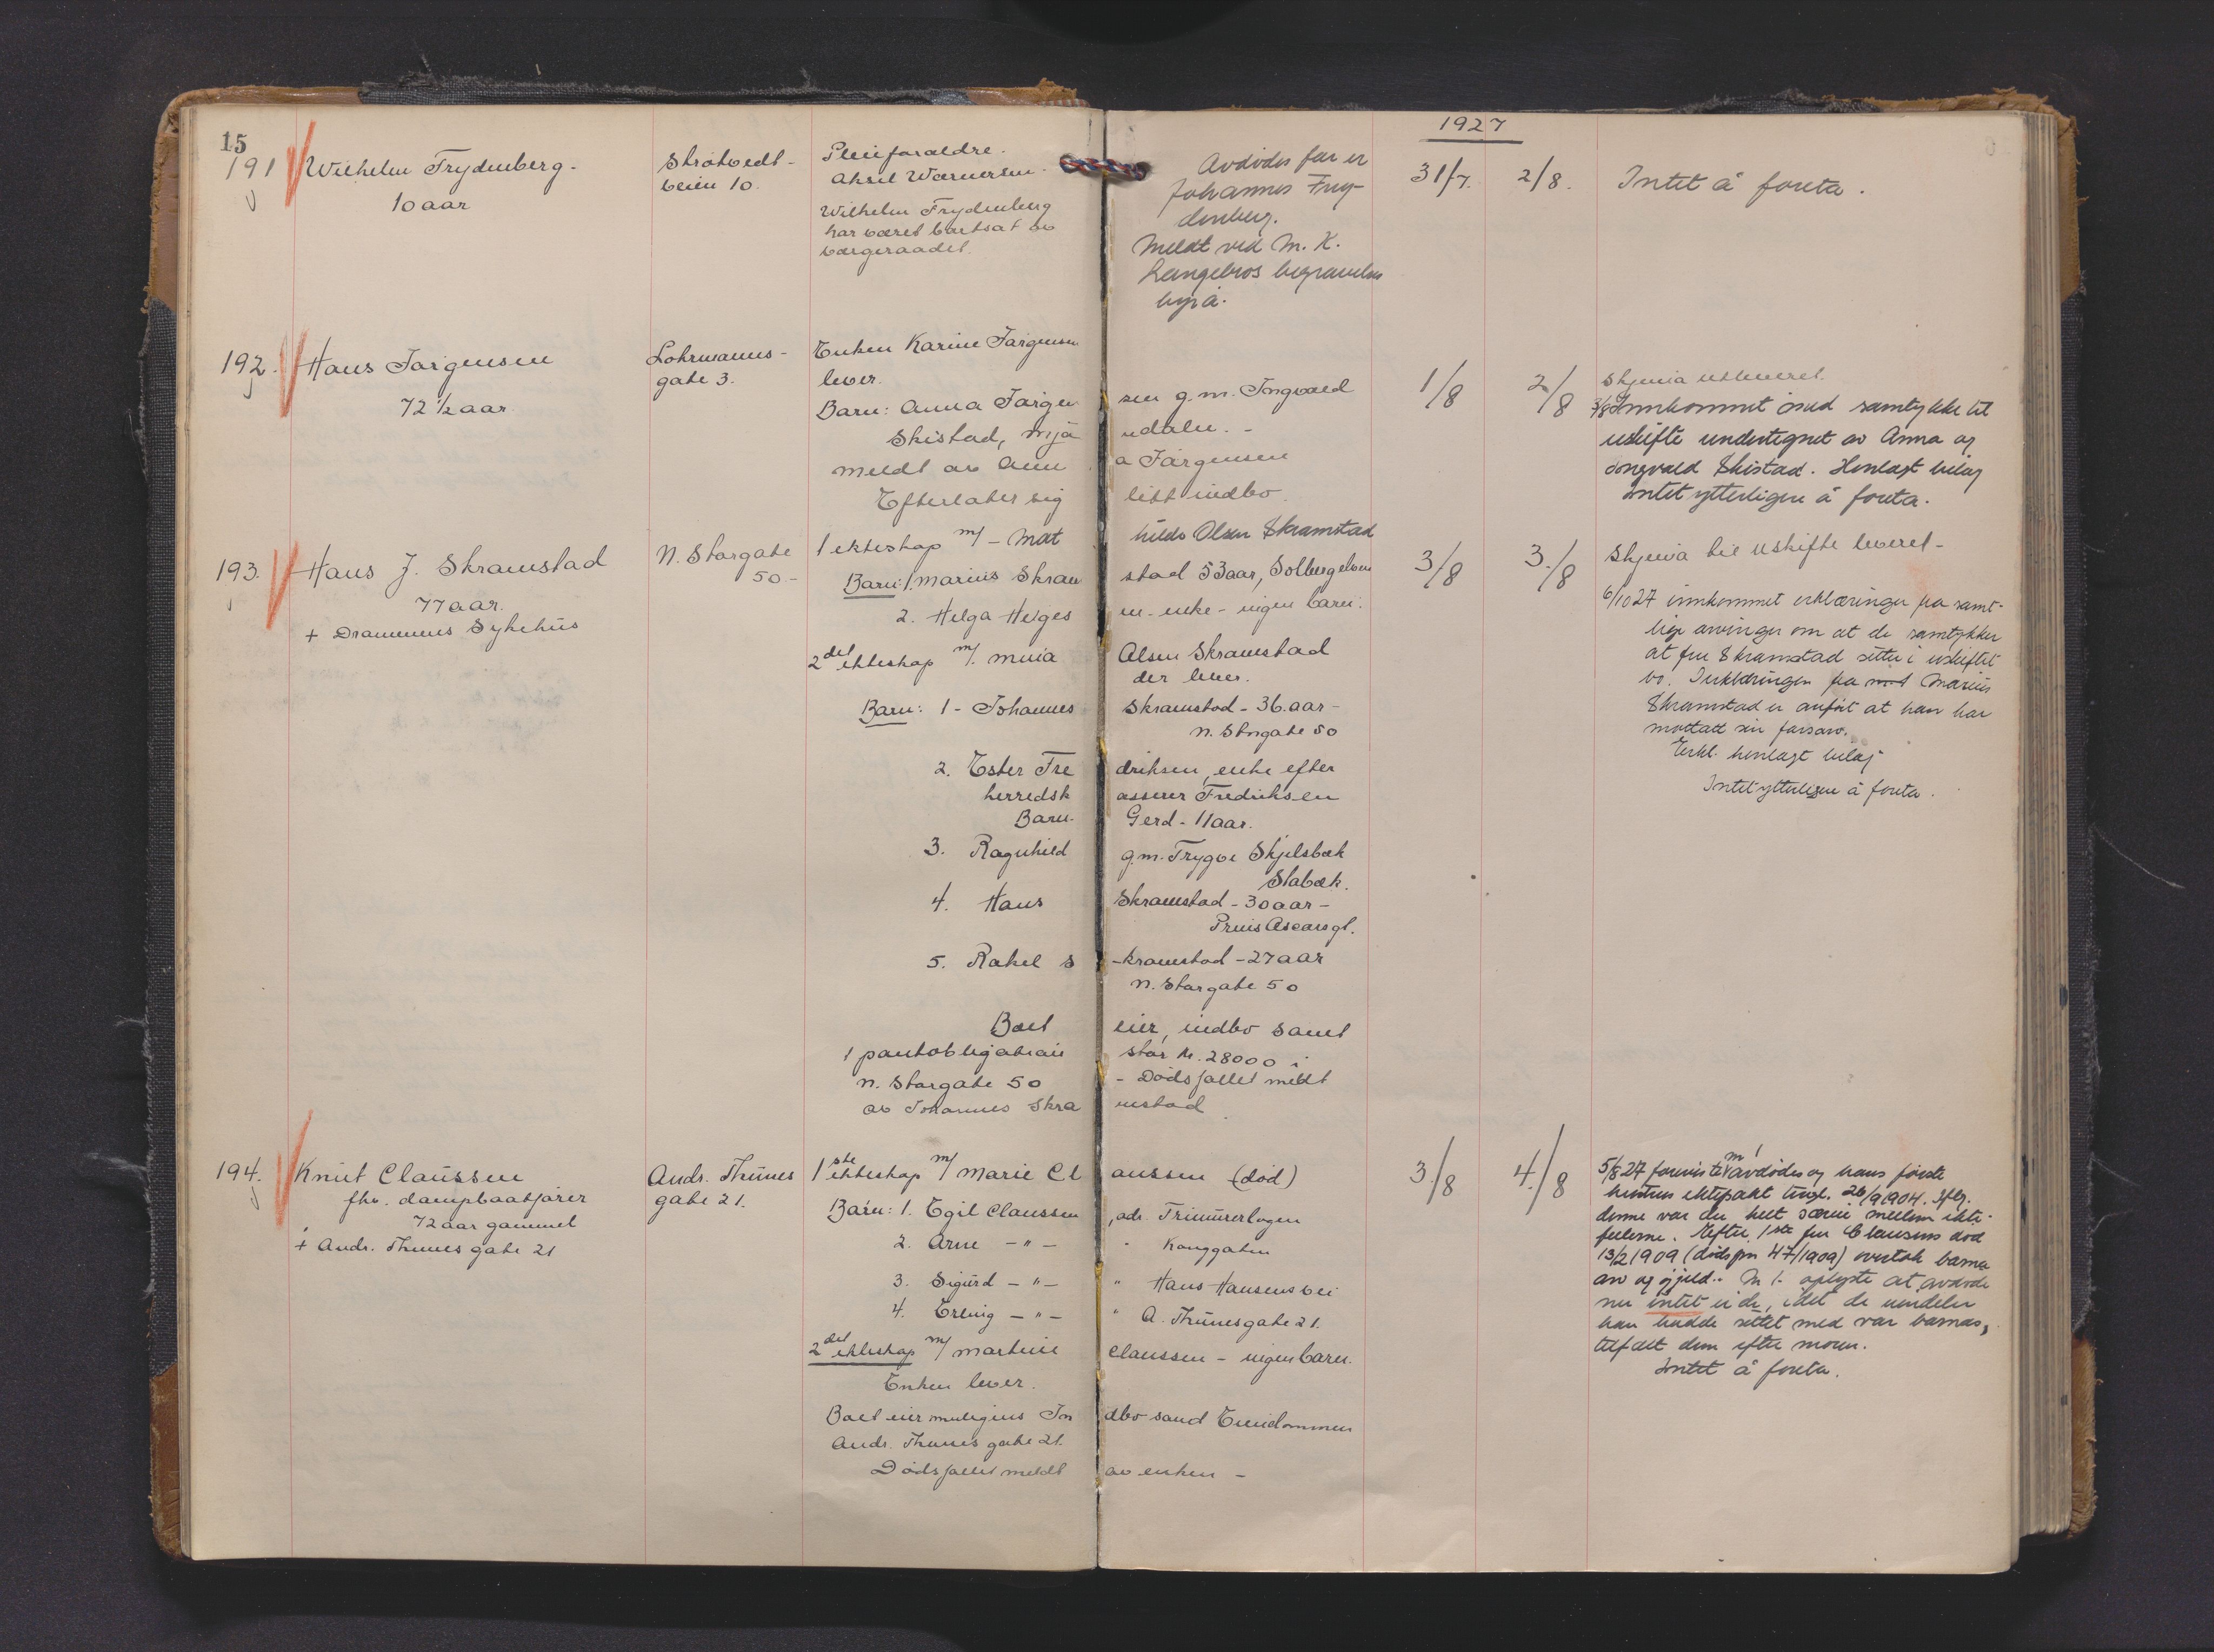 15
1927
191 Wilhelm Frydenberg.
10 aar
Strøtvedt-
veien 10.
Pleieforældre.
Aksel Wærnersen.
Wilhelm Frydenberg
har været bortsat av
værgeraadet.
Avdødes far er
Johannes Fry-
denberg.
Meldt ved M. K.
Langebros begravelses
byrå.
31/7. 2/8. Intet å foreta.
192. Hans Jørgensen
72 1/2 aar
Lohrmanns-
gate 3.
Enken Karine Jørgensen
lever.
Barn: Anna Jørgen sen g.m. Ingvald
Skistad, Mjø ndalen. -
meldt av Ann a Jørgensen
Efterlater sig litt indbo.
1/8 2/8 Skjema utleveret.
3/8 Innkommet med samtykke til
uskifte undertegnet av Anna og
Ingvald Skistad. Henlagt bilag
Intet ytterligere å foreta.
193. Hans J. Skramstad
77 aar.
+ Drammens Sykehus
N. Storgate
50 -
1 ekteskap m/ - Mat hilde Olsen Skramstad
Barn: 1. Marius Skram stad 53 aar, Solbergelven
2. Helga Helges en - enke - ingen barn.
2det ekteskap m/. Mina Olsen Skramstad
der lever.
Barn: 1 - Johannes Skramstad - 36 aar -
N. Storgate 50
2. Ester Fre driksen, enke efter
herredsk asserer Fredriksen
Barn. Gerd - 11 aar.
3. Ragnhild g.m. Trygve Skjelsbæk
Stabæk.
4. Hans Skramstad - 30 aar -
Prins Oscarsgt.
5. Rakel S -kramstad - 27 aar
N. Storgate 50
Boet eier, indbo samt
1 pantobligation stor kr. 28000 i
N. Storgate 50 - Dødsfallet meldt
av Johannes Skra mstad.
3/8 3./8 Skjema til uskifte leveret -
6/10 27 innkommet erklæringer fra samt-
lige arvinger om at de samtykker
at fru Skramstad sitter i uskiftet
bo. I erklæringen fra Marius
Skramstad er anført at han har
mottatt sin farsarv.
Erkl. henlagt bilag
Intet ytterligere å foreta.
194. Knut Claussen
fhv. dampbaatfører
72 aar gammel
+ Andr. Thunes gate 21
Andr. Thunes
gate 21.
1ste ekteskap m/ Marie Cl aussen (død)
Barn: 1. Egil Claussen, adr. Frimurerlogen
2. Arne - " - " Konggaten
3. Sigurd - " - " Hans Hansens vei
4. Erling - " - " A. Thunesgate 21.
2det ekteskap m/ Martine Claussen - ingen barn.
Enken lever.
Boet eier muligens In dbo samt Eiendommen
Andr. Thunes gate 21.
Dødsfallet meldt av enken -
3./8 4./8 5/8 27 foreviste m/ avdødes og hans første
hustrus ektepakt tingl. 26/9 1904. Iflg.
denne var der helt særeie mellem ekte-
fellerne. Efter 1ste fru Claussens død
13/2 1909 (dødspr 47/1909) overtok barna
arv og gjeld. M/. oplyste at avdøde
nu intet eide, idet de eiendeler
han hadde sittet med var barnas,
tilfalt dem efter moren.
Intet å foreta.